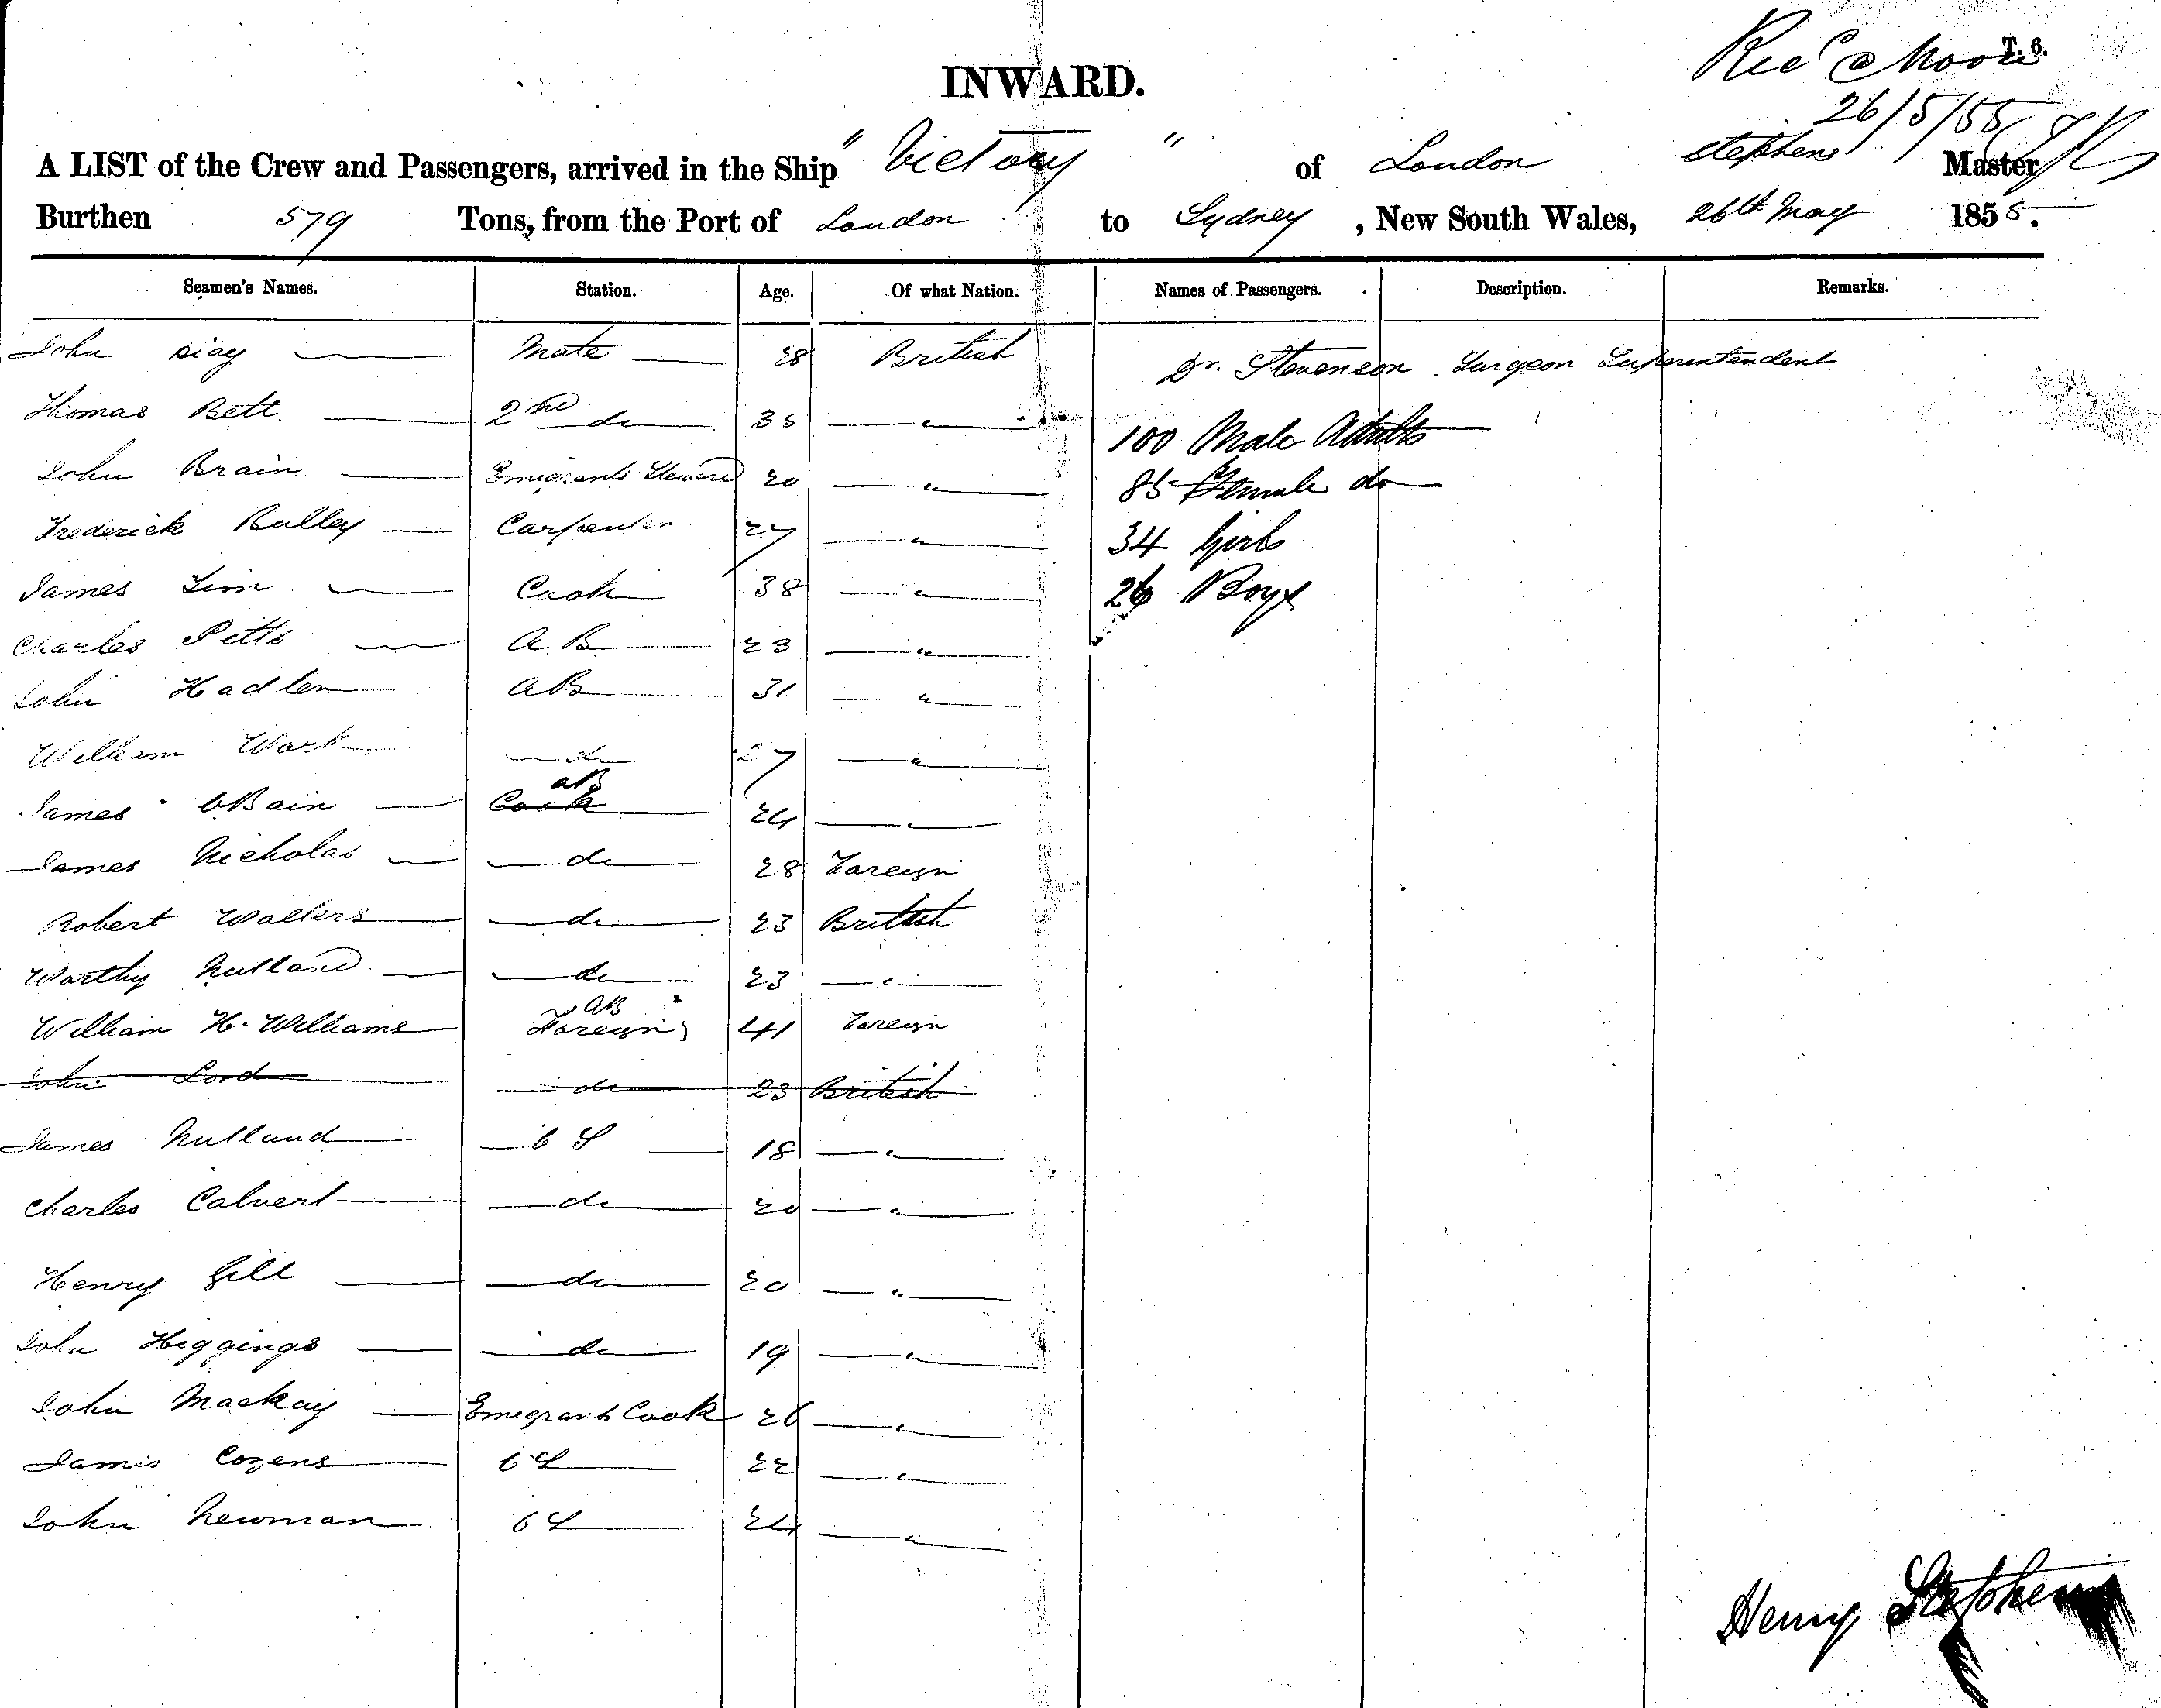 T. 6.
INWARD.
26/5/55
A LIST of the Crew and Passengers, arrived in the Ship " Victory " of London Stephens Master
Burthen 579 Tons, from the Port of London to Sydney, New South Wales, 26th May 1855.
Seamen's Names. Station. Age. Of what Nation. Names of Passengers. Description. Remarks.
John Mate 28 British Dr. Stevenson Surgeon Superintendent
Thomas Bett 2nd do 35 "
100 Male Adults
John Brain Emigrants Steward 20 "
85 Female do
Frederick Bulley Carpenter 27 "
34 Girls
James Sim Cook 38 "
26 Boys
Charles Pitts A B 23 "
John Hadlen AB 31 "
William Wark do 27 "
AB
James OBain Cook 24 "
James Nicholas do 28 Foreign
Robert Walters do 23 British
Worthy Nutland do 23 "
AB
William H. Williams Foreign 41 Foreign
John Lord do 23 British
James Nutland O S 18 "
Charles Calvert do 20 "
Henry Gill do 20 "
John Higgings do 19 "
John Mackay Emigrants Cook 26 "
James Cozens O S 22 "
John Newman O S 24 "
Henry Stephens